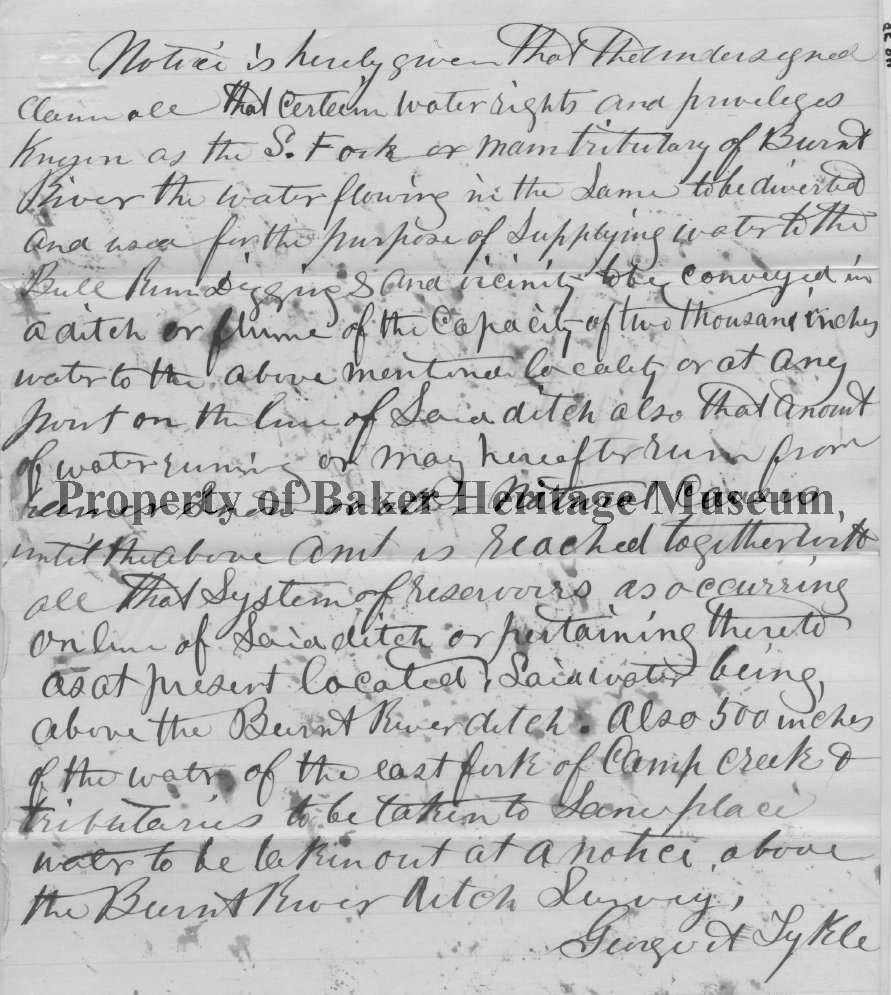 Notice is hereby given That the undersigned
claim all that certain water rights and priveleges
Known as the S. Fork or main tributary of Burnt
River the water flowing in the Same to be diverted
and used for the purpose of Supplying water to the
Bull Run Diggings and vicinity to be conveyed in
a ditch or flume of the Capacity of two thousand inches
water to the above mentioned locality or at any
point on the line of Said ditch also that amount
of water runing or may hereafter run from
Property of Baker Heritage Museum
or other Natural Causes,
until the above amt is reached together with
all That System of reservoirs as occurring
on line of Said ditch or pertaining thereto
as at present located, Said water being,
above the Burnt River ditch. Also 500 inches
of the water of the east fork of Camp Creek &
tributaries to be taken to Same place
water to be taken out at a notice above
the Burnt River Ditch Survey,
George A Tykle